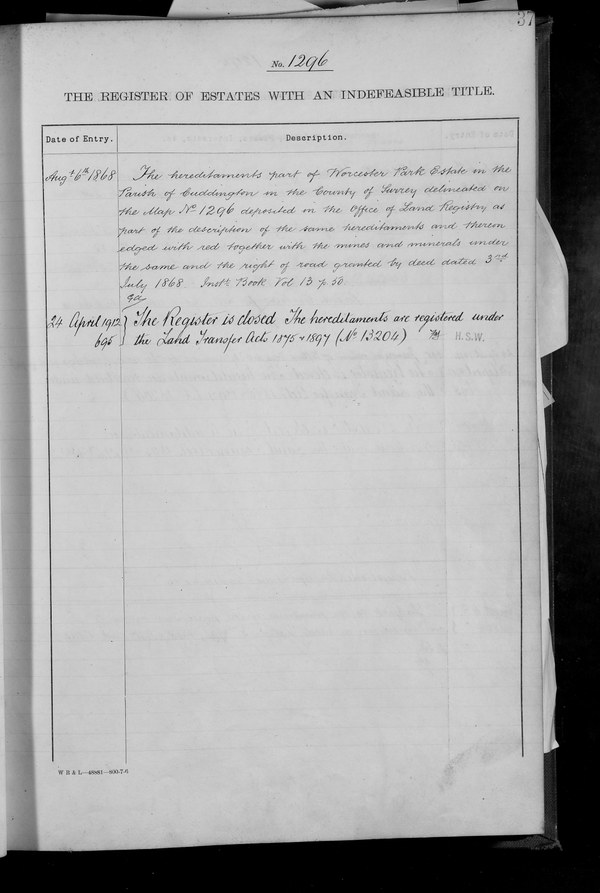 37
No. 1296
THE REGISTER OF ESTATES WITH AN INDEFEASIBLE TITLE.
Date of Entry. Description.
Augt. 6th 1868 The hereditaments part of Worcester Park Estate in the
Parish of Cuddington in the County of Surrey delineated on
the Map No 1296 deposited in the Office of Land Registry as
part of the description of the same hereditaments and therein
edged with red together with the mines and minerals under
the same and the right of road granted by deed dated 3rd
July 1868. Instr. Book Vol 13 p. 50.
24 April 1912 The Register is closed The hereditaments are registered under
695 the Land Transfer Acts 1875 & 1897 (No 13204) H.S.W.
W B & L—48881—800-7-6